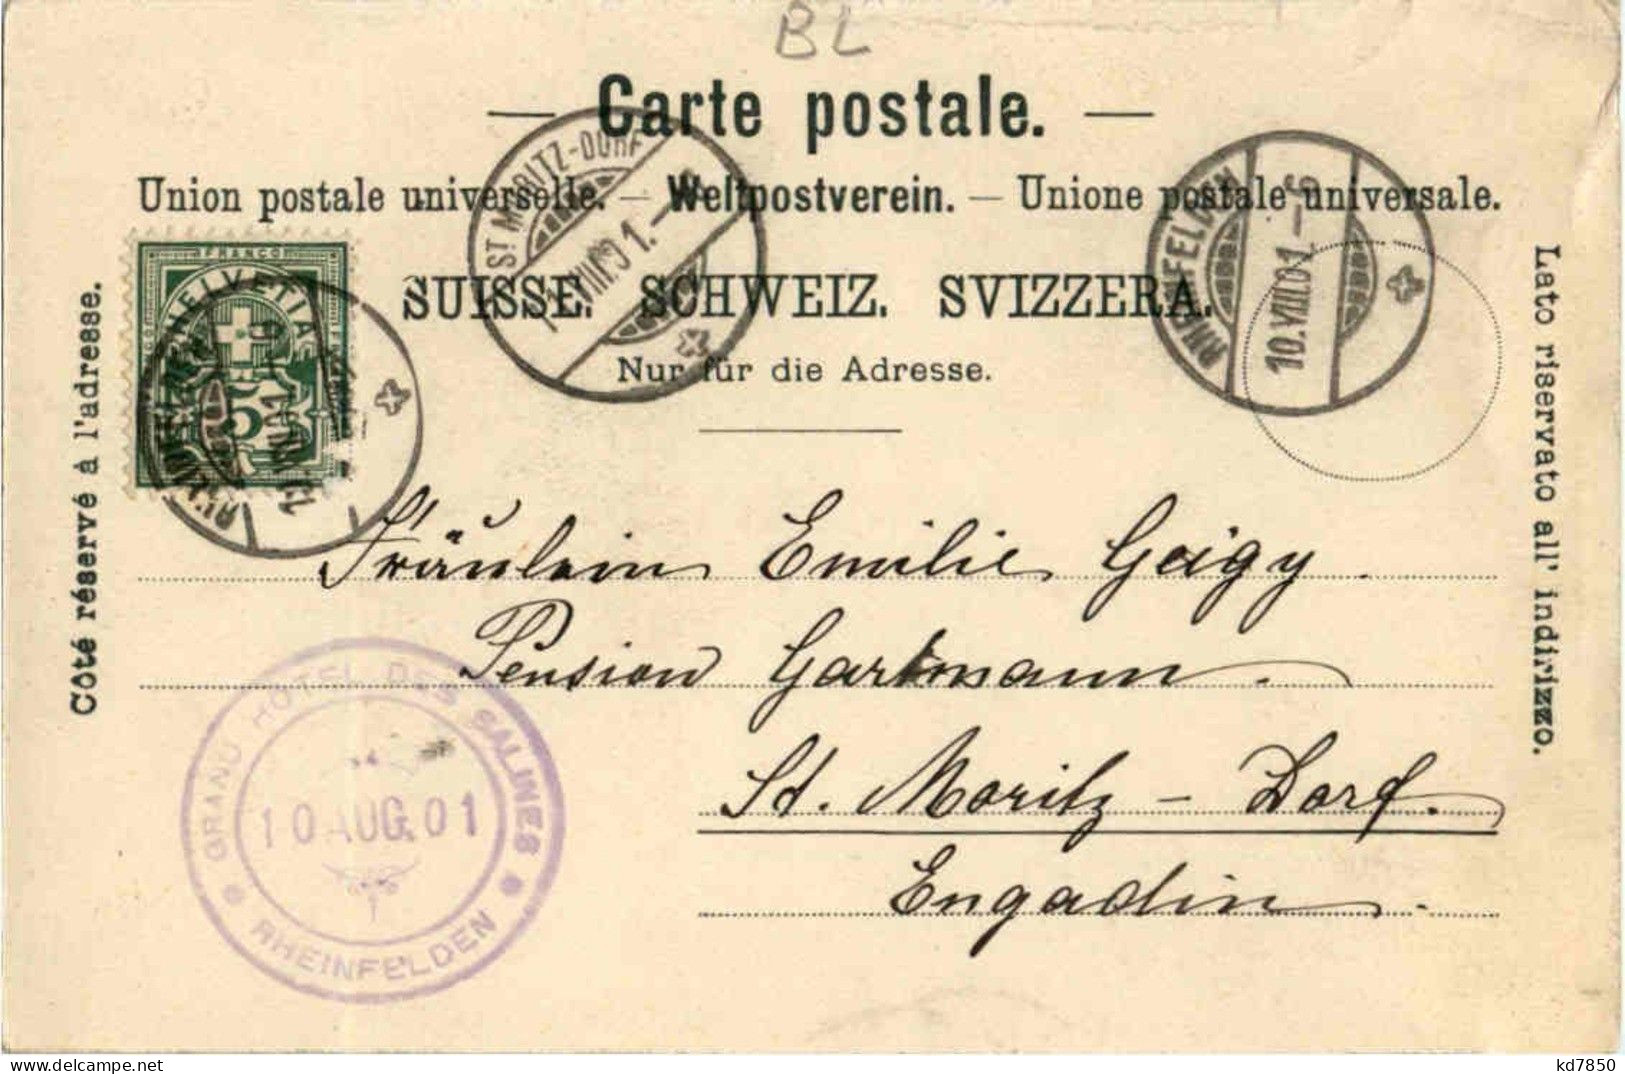 BL
— Carte postale. —
Union postale universelle. — Weltpostverein. — Unione postale universale.
SUISSE. SCHWEIZ. SVIZZERA.
Nur für die Adresse.
Côté réservé à l'adresse.
Lato riservato all' indirizzo.
FRANCO
HELVETIA
5
ST MORITZ-DORF
RHEINFELDEN
10.VIII.01.–6
Fräulein Emilie Geigy.
Pension Gartmann.
St. Moritz – Dorf.
Engadin.
GRAND HOTEL DES SALINES
10 AUG. 01
RHEINFELDEN
kd7850